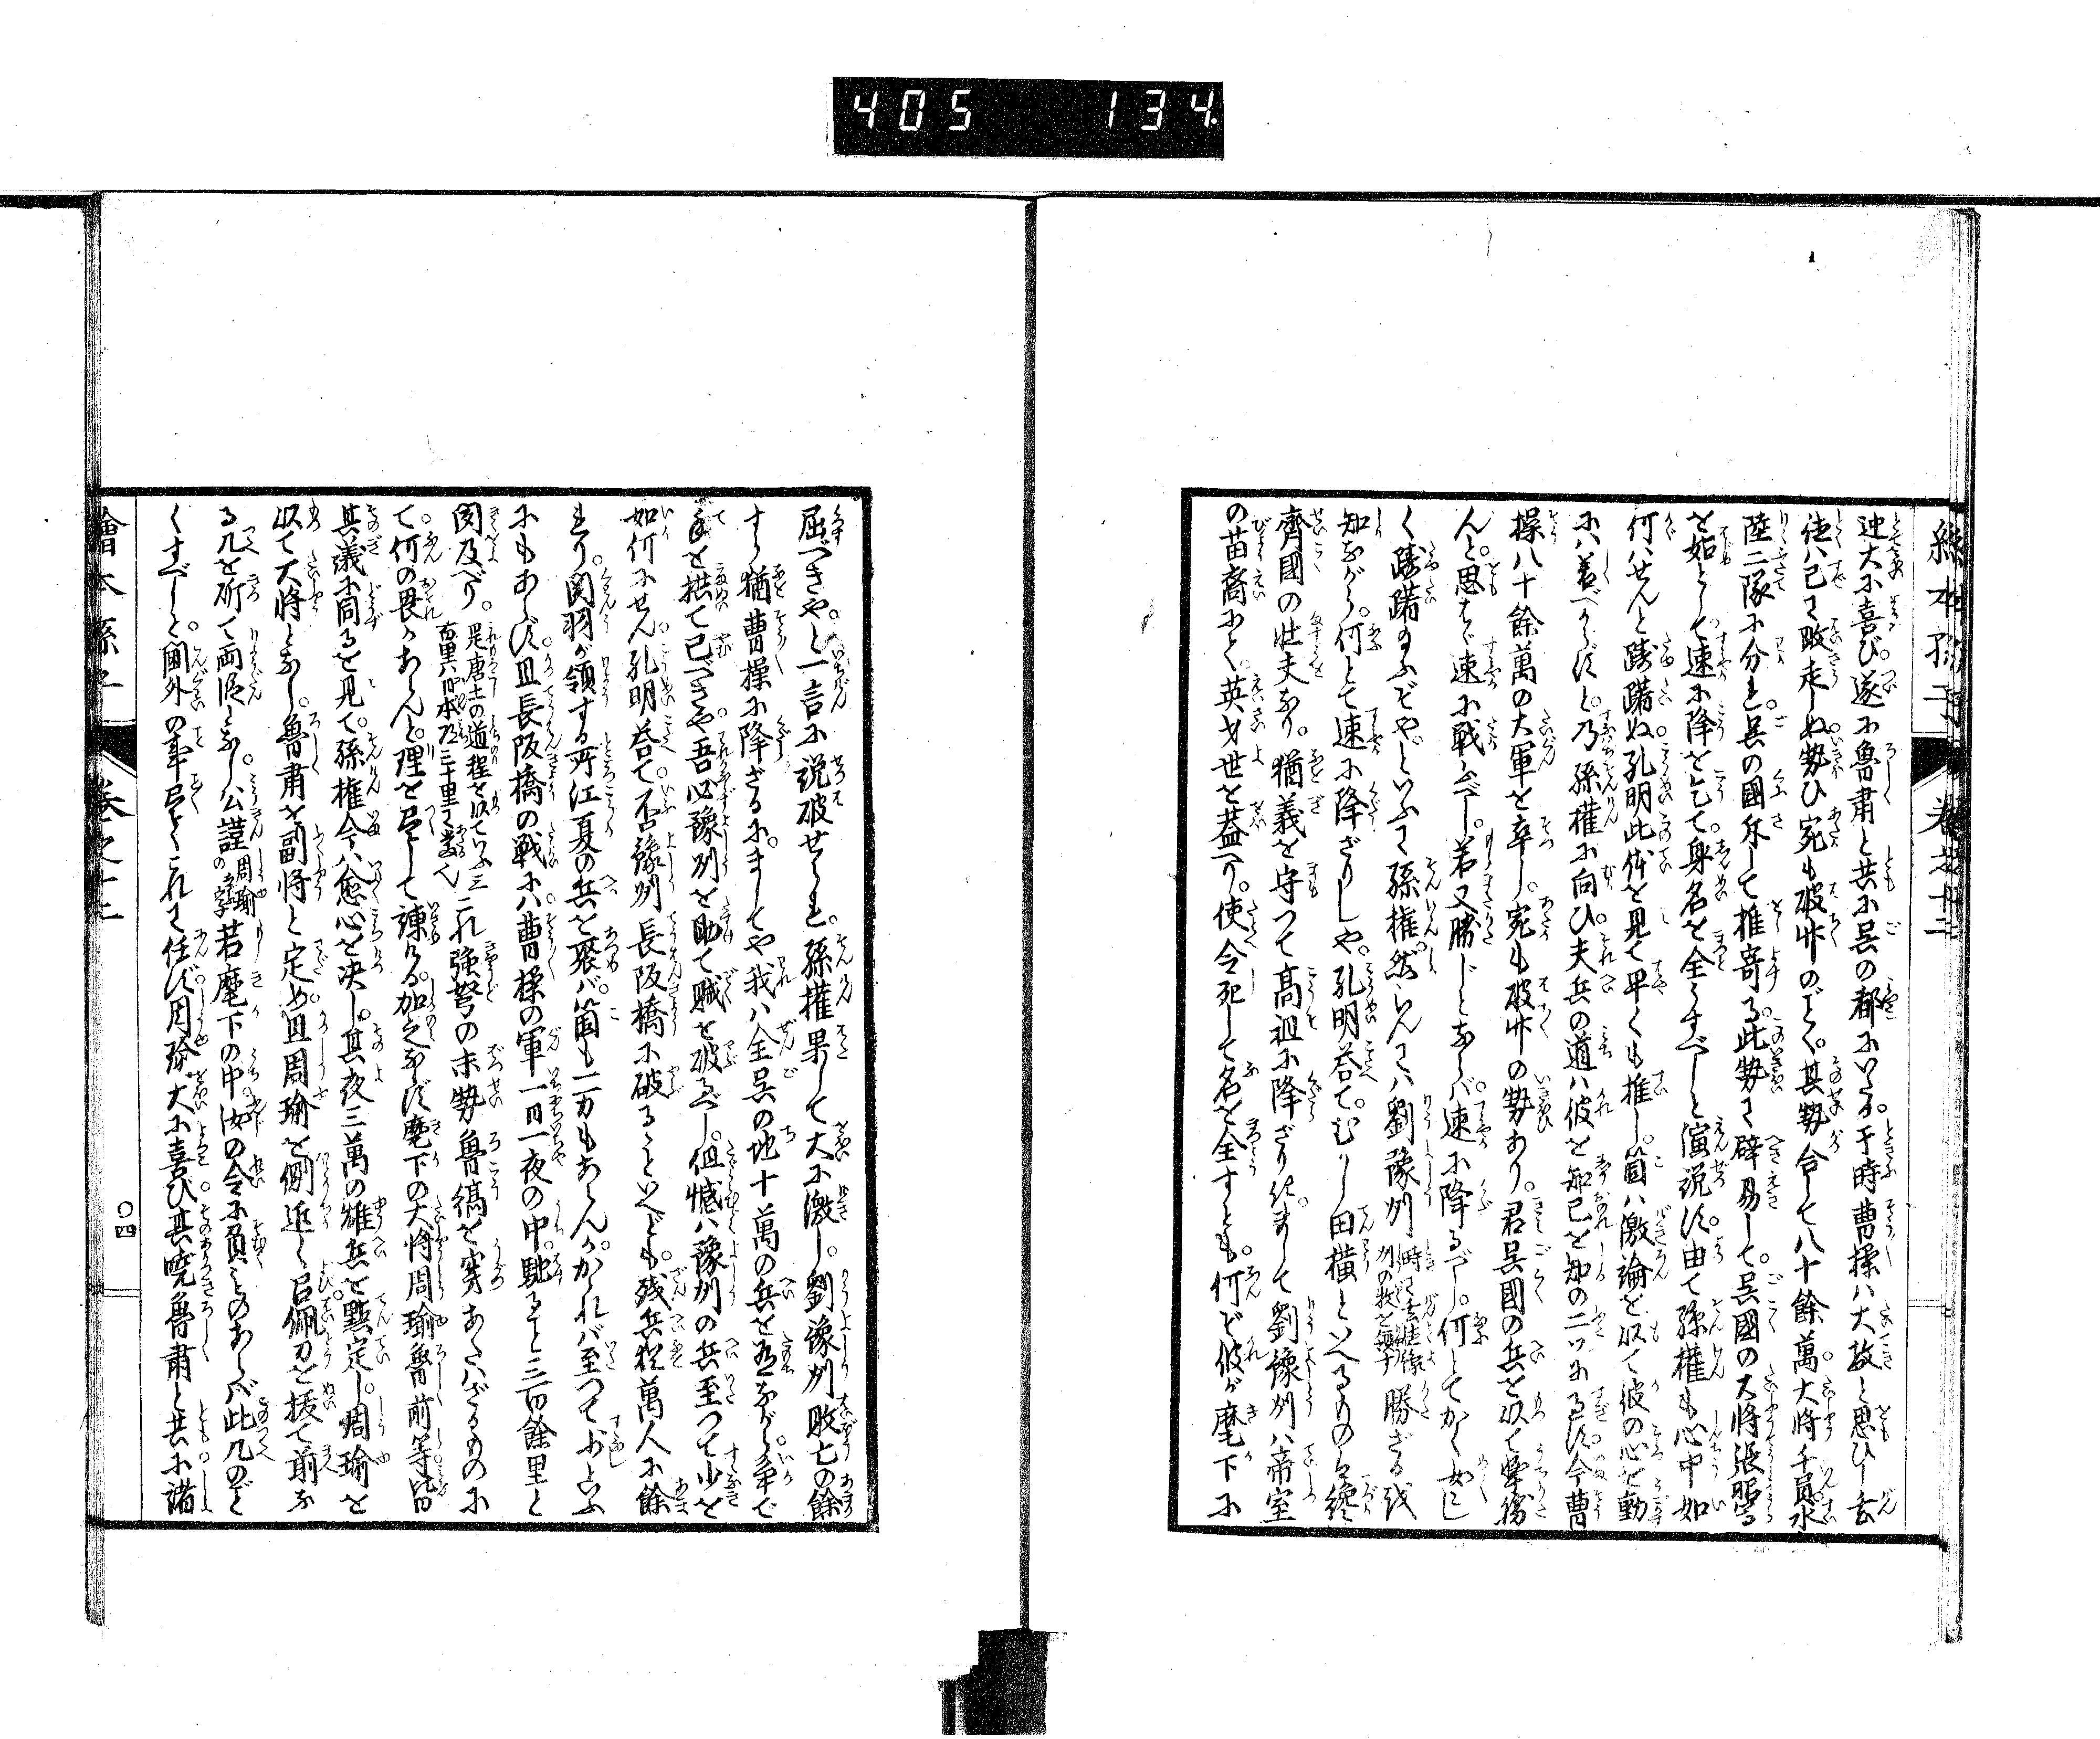 405 134.
繪本孫子 巻之十二
迚大に喜び。遂に魯肅と共に呉の都にいたる。于時曹操ハ大敵と思ひし玄
徳ハ已に敗走しぬ勢ひ宛も破竹のごとく。其勢合して八十餘萬。大将千員水
陸二隊に分ち。呉の國界して推寄る。此勢に辟易して。呉國の大将張昭等
を始として速に降を乞て。身名を全くすべしと演説す。由て孫權も心中如
何ハせんと踌躇ぬ孔明此体を見て早くも推し。箇ハ激論を以て彼の心を動
にハ若べからずと。乃孫權に向ひ。夫兵の道ハ彼を知己を知の二ツにあるず今曹
操八十餘萬の大軍を卒し。宛も破竹の勢あり。君呉國の兵を以て撃勝
んと。思さバ速に戦べし。若又勝じとならバ速に降るべし。何とてかく女々し
く踌躇給ふぞや。といふに孫権。然らんにハ劉豫州 勝ざる成
知ながら。何とて速に降ざりしや。孔明答て。むかし田横といへるものハ纔
齊國の壮夫なり。猶義を守つて高祖に降ざりき。まして劉豫州ハ帝室
の苗裔にて。英才世を蓋へり。使令死して名を全すとも。何ぞ彼が麾下に
屈べきや。と一言に説破せしむれ。孫權果して大に激し。劉豫州敗亡の餘
すら猶曹操に降ざるに。ましてや我ハ全呉の地十萬の兵を有ながら。争で
手を拱て已べきや。吾必豫州を助て賊を破るべし。但憾ハ豫州の兵至つて少を
如何にせん。孔明答て。否豫州長阪橋に破るゝといへども。残兵猶萬人に餘
れり。関羽が領する所江夏の兵を聚バ。箇も二万もあらんかかれバ至つて少しといふ
にもあらず。且長阪橋の戦にハ。曹操の軍一日一夜の中。馳ること三百餘里と
聞及べり。是唐土の道程を以ていふ三百里ハ日本乃三十里に当る也 これ強弩の末勢魯縞を穿あたハざるものに
て。何の畏かあらんと。理を尽して諌ける。加之ならず麾下の大将周瑜魯肅等皆
其議に同るを見て。孫権今ハ愈心を決し。其夜三萬の雄兵を點定し。周瑜を
以て大将となし。魯肅を副将と定め。且周瑜を側近く召。佩刀を援て前な
る几を斫て両段となし。公謹 周瑜の字 若麾下の中汝の令に負ものあらバ此几のごと
くすべしと。閫外の事尽くこれに任ず。周瑜大に喜び。其曉魯肅と共に諸
繪本孫子 巻之十二 〇四